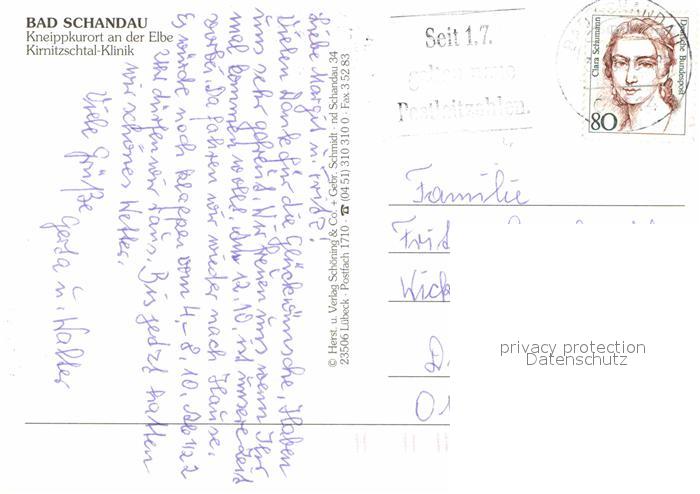 BAD SCHANDAU
Kneippkurort an der Elbe
Kirnitzschtal-Klinik
Liebe Margit u. Fritz!
Vielen Dank für die Glückwünsche, Haben
uns sehr gefreut. Wir freuen uns wenn Ihr
mal kommen wollt. Am 12.10. ist unsere Zeit
vorbei. Da fahren wir wieder nach Hause.
Es würde noch klappen vom 4.-8.10. Ab 1/2 2
Uhr dürfen wir raus. Bis jetzt hatten
wir schönes Wetter.
Viele Grüße
Gerda u. Walter
© Herst. u. Verlag Schöning & Co. + Gebr. Schmidt · nd Schandau 34
23506 Lübeck · Postfach 1710 · ☎ (04 51) 310 310 0 · Fax 3 52 83
Seit 1.7.
Postleitzahlen.
BAD SCHANDAU
Clara Schumann
Deutsche Bundespost
80
Familie
Frit
Wick
01
privacy protection
Datenschutz